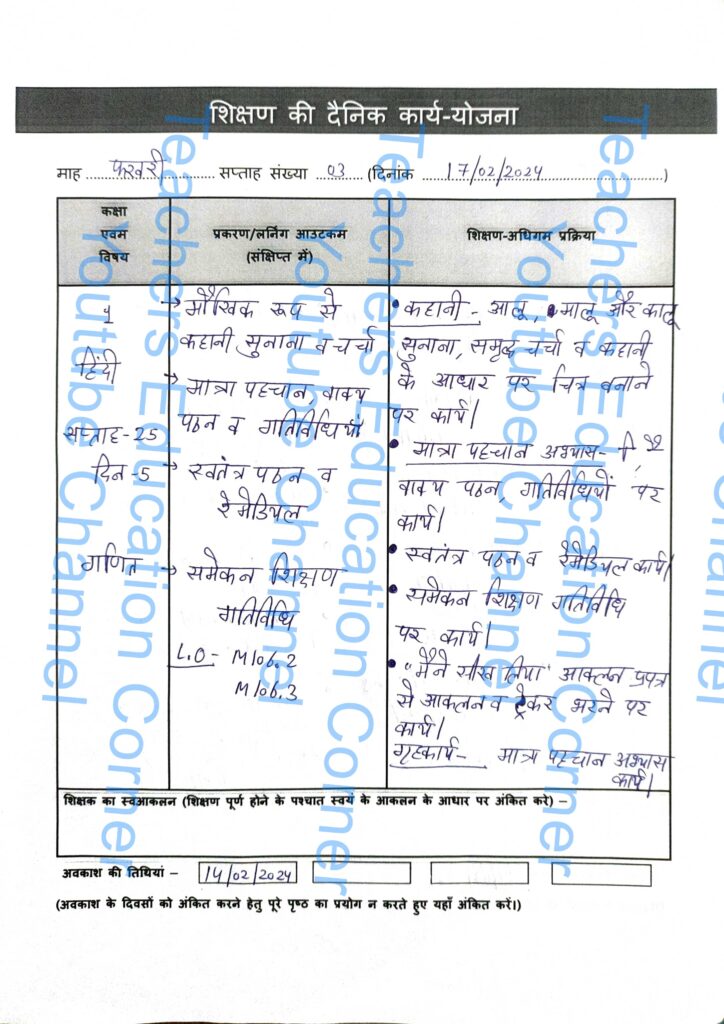 शिक्षण की दैनिक कार्य-योजना
माह ....फरवरी.... सप्ताह संख्या ..03... (दिनांक ....17/02/2024....)
कक्षा
एवम
विषय
प्रकरण/लर्निंग आउटकम
(संक्षिप्त में)
शिक्षण-अधिगम प्रक्रिया
1
हिंदी
सप्ताह-25
दिन-5
गणित
→ मौखिक रूप से
कहानी सुनाना व चर्चा
→ मात्रा पहचान, वाक्य
पठन व गतिविधियाँ
→ स्वतंत्र पठन व
रेमेडियल
→ समेकन शिक्षण
गतिविधि
L.O- M106.2
M106.3
• कहानी - आलू, मालू और कालू
सुनाना, समृद्ध चर्चा व कहानी
के आधार पर चित्र बनाने
पर कार्य।
• मात्रा पहचान अभ्यास-
वाक्य पठन, गतिविधियों पर
कार्य।
• स्वतंत्र पठन व रेमेडियल कार्य।
• समेकन शिक्षण गतिविधि
पर कार्य।
• "मैंने सीख लिया" आकलन प्रपत्र
से आकलन व ट्रेकर भरने पर
कार्य।
गृहकार्य- मात्रा पहचान अभ्यास
कार्य।
शिक्षक का स्वआकलन (शिक्षण पूर्ण होने के पश्चात स्वयं के आकलन के आधार पर अंकित करे) –
अवकाश की तिथियां – 14/02/2024
(अवकाश के दिवसों को अंकित करने हेतु पूरे पृष्ठ का प्रयोग न करते हुए यहाँ अंकित करें।)
Teachers Education Corner
Youtube Channel
Teachers Education Corner
Youtube Channel
Teachers Education Corner
Youtube Channel